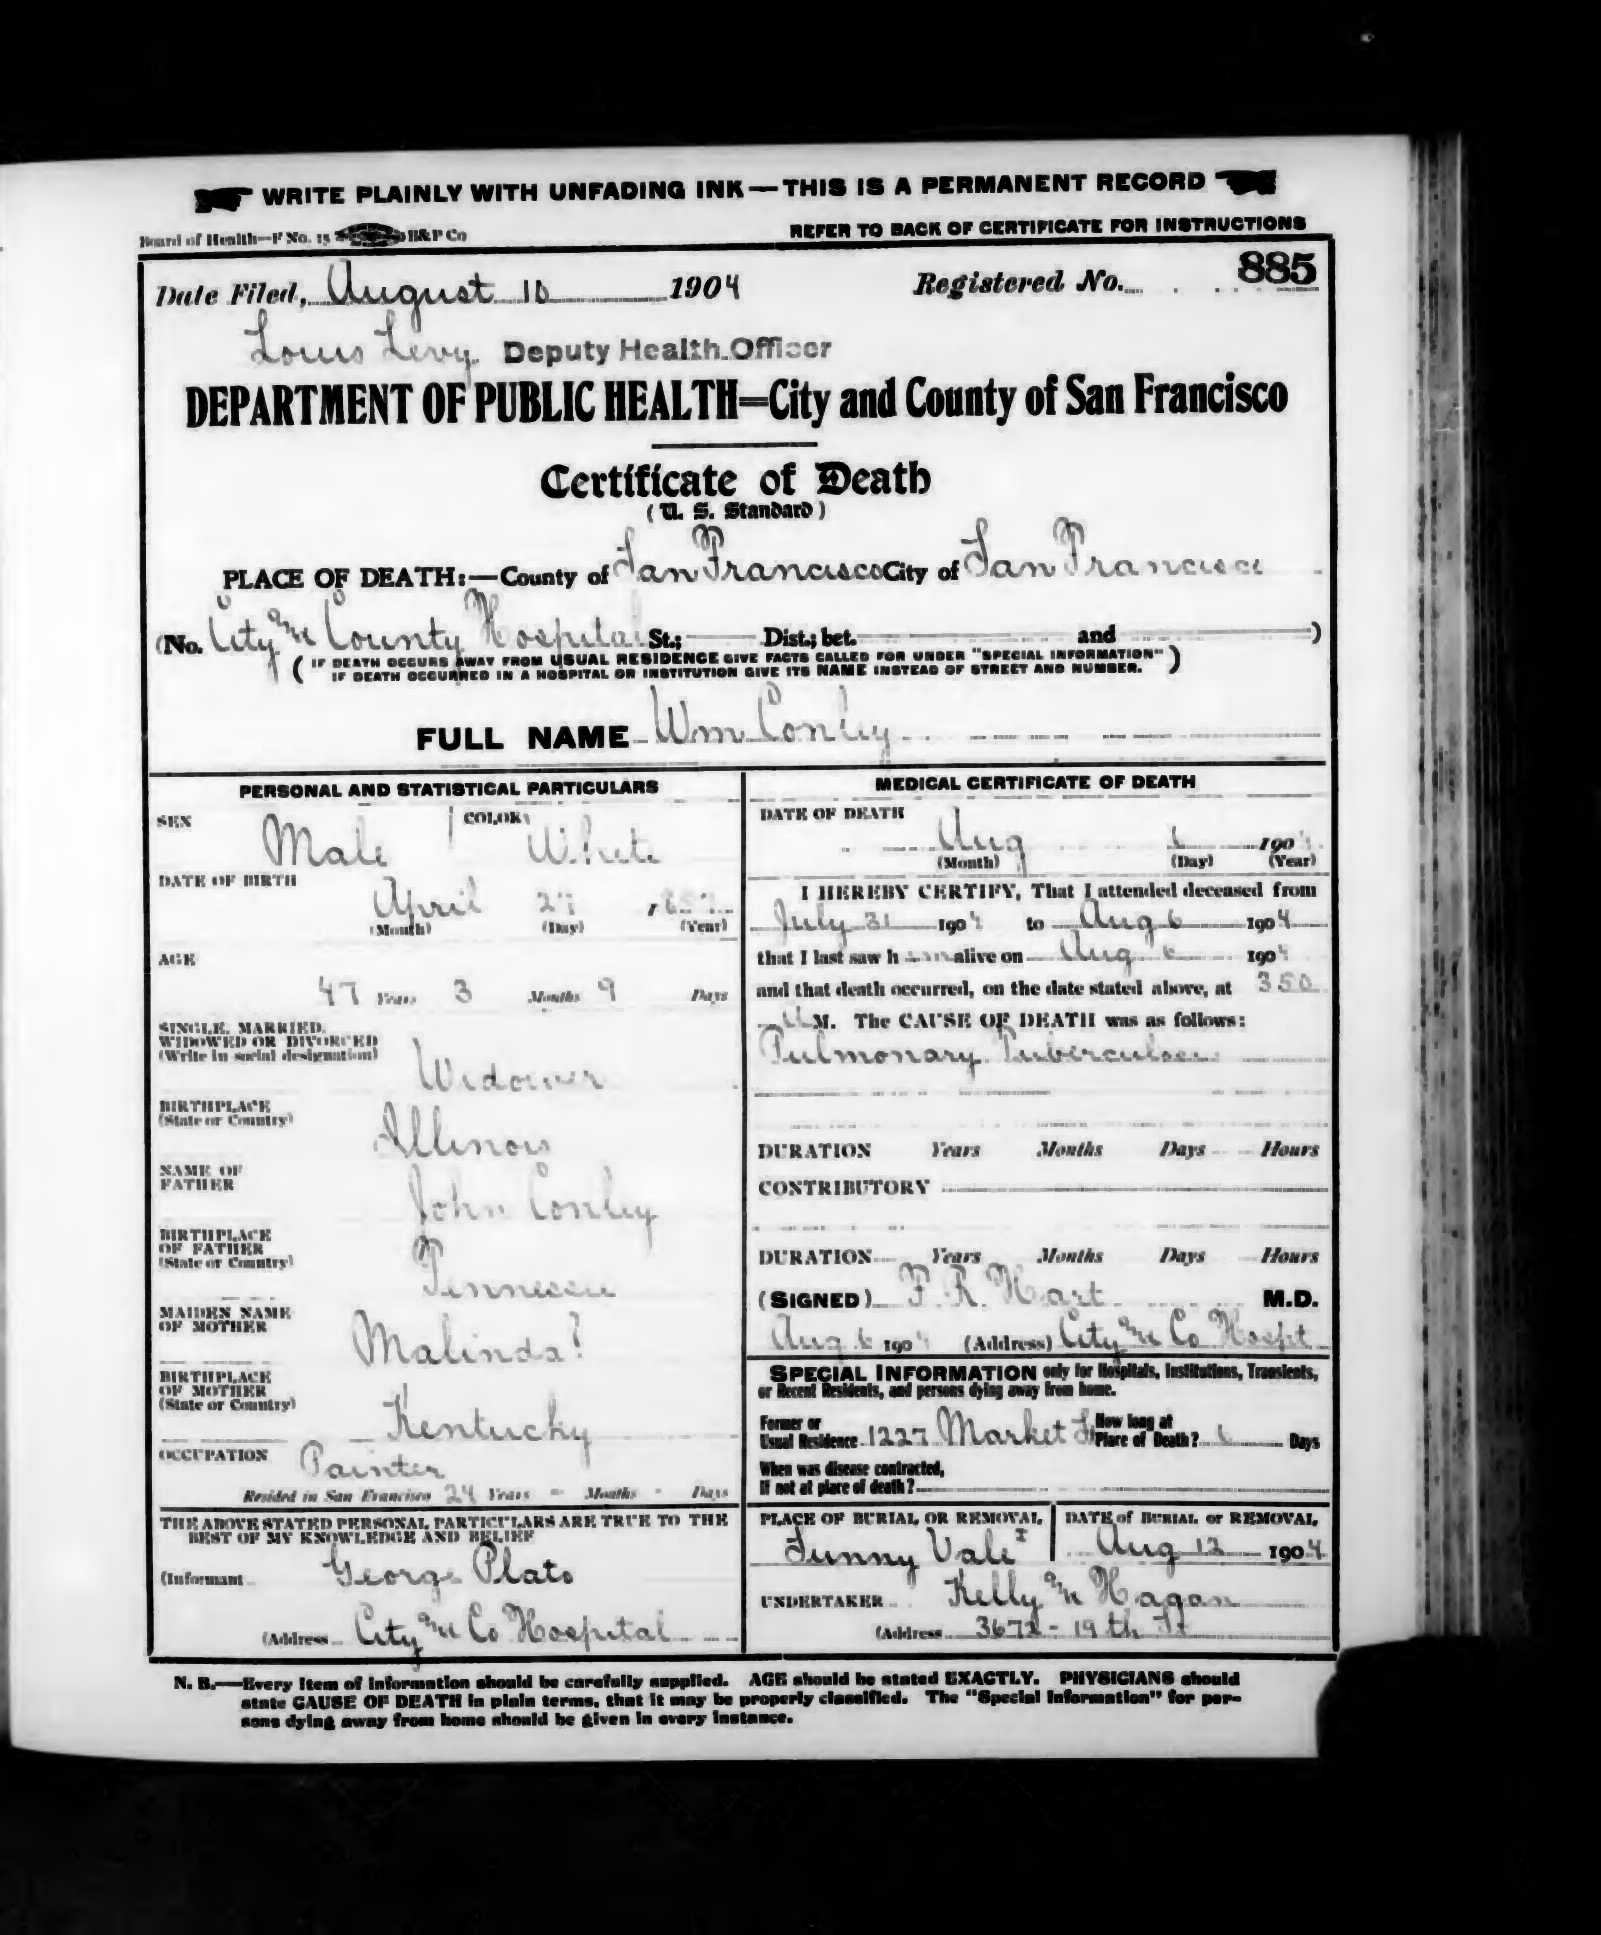 WRITE PLAINLY WITH UNFADING INK—THIS IS A PERMANENT RECORD
Board of Health—F No. 15 B&P Co REFER TO BACK OF CERTIFICATE FOR INSTRUCTIONS
Date Filed, August 10 1904 Registered No. 885
Louis Levy Deputy Health Officer
DEPARTMENT OF PUBLIC HEALTH=City and County of San Francisco
Certificate of Death
(U. S. Standard)
PLACE OF DEATH:—County of San Francisco City of San Francisco
(No. City and County Hospital St.; Dist.; bet. and )
(IF DEATH OCCURS AWAY FROM USUAL RESIDENCE GIVE FACTS CALLED FOR UNDER "SPECIAL INFORMATION"
IF DEATH OCCURRED IN A HOSPITAL OR INSTITUTION GIVE ITS NAME INSTEAD OF STREET AND NUMBER.)
FULL NAME Wm Conley
PERSONAL AND STATISTICAL PARTICULARS
SEX Male COLOR White
DATE OF BIRTH
April 27 1857
(Month) (Day) (Year)
AGE
47 Years 3 Months 9 Days
SINGLE, MARRIED,
WIDOWED OR DIVORCED
(Write in social designation)
Widower
BIRTHPLACE
(State or Country)
Illinois
NAME OF
FATHER
John Conley
BIRTHPLACE
OF FATHER
(State or Country)
Tennessee
MAIDEN NAME
OF MOTHER
Malinda?
BIRTHPLACE
OF MOTHER
(State or Country)
Kentucky
OCCUPATION Painter
Resided in San Francisco 24 Years - Months - Days
THE ABOVE STATED PERSONAL PARTICULARS ARE TRUE TO THE
BEST OF MY KNOWLEDGE AND BELIEF
(Informant George Plato
(Address City and Co Hospital
MEDICAL CERTIFICATE OF DEATH
DATE OF DEATH
Aug 6 1904
(Month) (Day) (Year)
I HEREBY CERTIFY, That I attended deceased from
July 31 1904 to Aug 6 1904
that I last saw h im alive on Aug 6 1904
and that death occurred, on the date stated above, at 350
A M. The CAUSE OF DEATH was as follows:
Pulmonary Tuberculosis
DURATION Years Months Days Hours
CONTRIBUTORY
DURATION Years Months Days Hours
(SIGNED) F. R. Hart M.D.
Aug 6 1904 (Address) City and Co Hospt
SPECIAL INFORMATION only for Hospitals, Institutions, Transients,
or Recent Residents, and persons dying away from home.
Former or
Usual Residence 1227 Market St How long at
Place of Death? 6 Days
When was disease contracted,
If not at place of death?
PLACE OF BURIAL OR REMOVAL DATE of BURIAL or REMOVAL
Sunny Vale Aug 12 1904
UNDERTAKER Kelly and Hagan
(Address 3672 - 19th St
N. B.—Every item of information should be carefully supplied. AGE should be stated EXACTLY. PHYSICIANS should
state CAUSE OF DEATH in plain terms, that it may be properly classified. The "Special Information" for per-
sons dying away from home should be given in every instance.